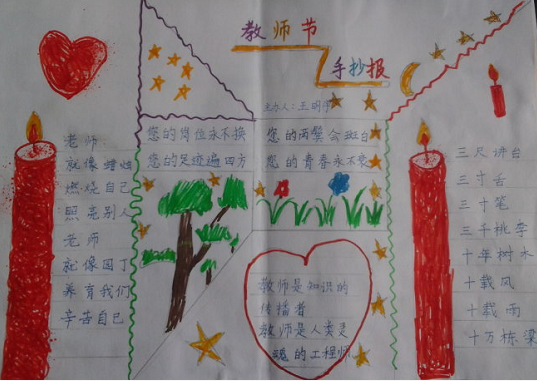 教师节
手抄报
主办人：王明
老师
就像蜡烛
燃烧自己
照亮别人
老师
就像园丁
养育我们
辛苦自己
您的岗位永不换
您的足迹遍四方
您的两鬓会斑白
您的青春永不衰
教师是知识的
传播者
教师是人类灵
魂的工程师
三尺讲台
三寸舌
三寸笔
三千桃李
十年树木
十载风
十载雨
十万栋梁